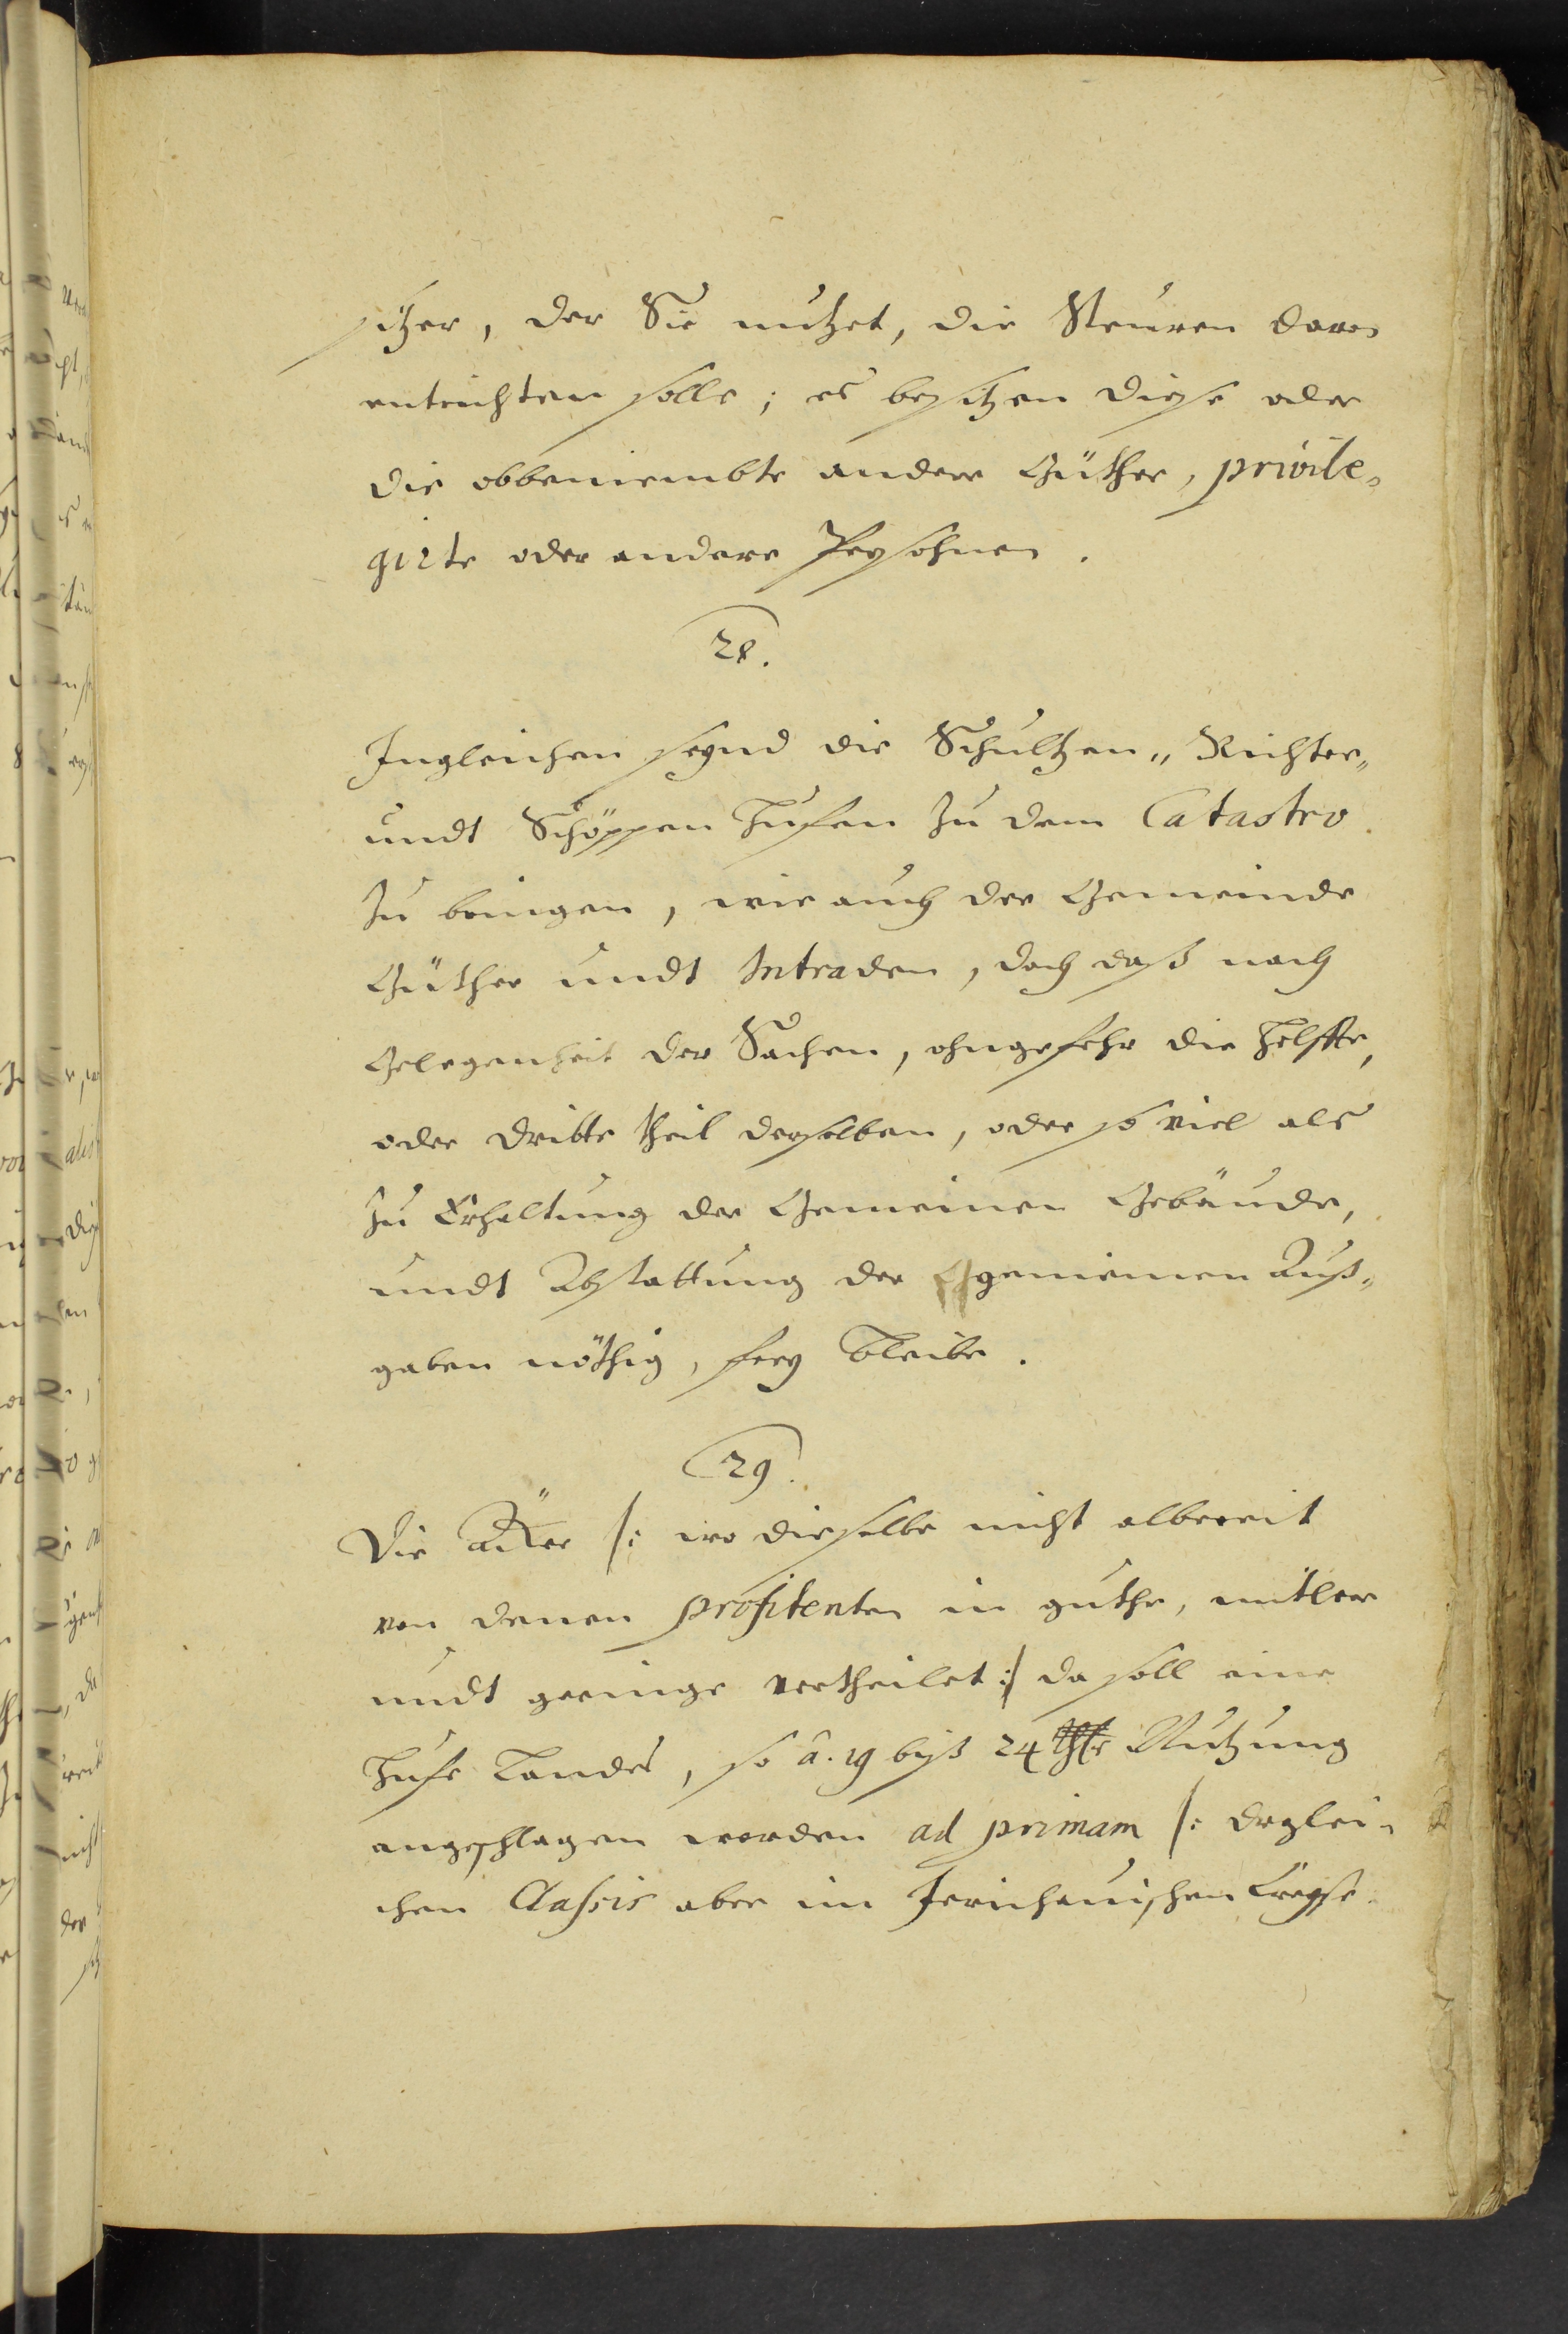 sitzer, der Sie nutzet, die Steuren davon
entrichten solle; es besitzen diese oder
die obbeniembte andere Güther, privile-
girte oder andere Persohnen.
28.
Ingleichen seynd die Schultzen„ Richter„
undt Schöppen Hufen zu dem Catastro
zu bringen, wie auch der Gemeinde
Güther undt Intraden, doch daß nach
Gelegenheit der Sachen, ohngefehr die Helffte,
oder dritte theil derselben, oder so viel als
zu Erhaltung der Gemeinen Gebäude,
undt Abstattung der gemeinen Auß„
gaben nöthig, frey bleibe.
29.
Die äker /: wo dieselbe nicht albereit
von denen profitenten in guthe, mitlere
undt geringe vertheilet :/ da soll eine
Hufe Landes, so â. 19 biß 24 Nutzung
angeschlagen worden ad primam /: derglei-
chen Classis aber im Jerichauischen Creyse
sitz